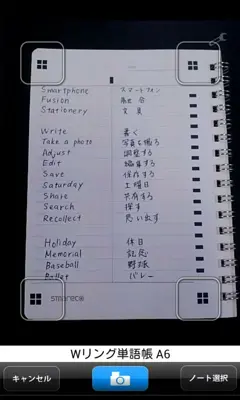 Smartphone スマートフォン
Fusion 融合
Stationery 文具
Write 書く
Take a photo 写真を撮る
Adjust 調整する
Edit 編集する
Save 保存する
Saturday 土曜日
Share 共有する
Search 探す
Recollect 思い出す
Holiday 休日
Memorial 記念
Baseball 野球
Ballet バレー
SMAREC
Wリング単語帳 A6
キャンセル
ノート選択